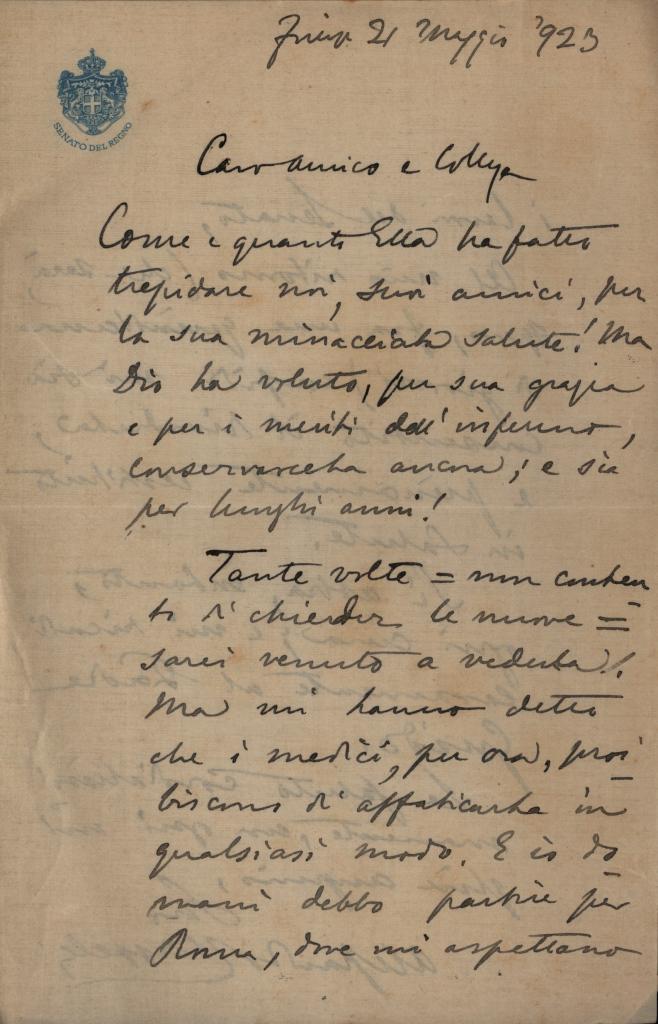 Firenze 21 Maggio '923
SENATO DEL REGNO
Caro amico e Collega
Come e quanto Ella ha fatto
trepidare noi, suoi amici, per
la sua minacciata salute! Ma
Dio ha voluto, per sua grazia
e per i meriti dell'infermo,
conservarcela ancora; e sia
per lunghi anni!
Tante volte = non conten
to di chieder le nuove =
sarei venuto a vederla!
Ma mi hanno detto
che i medici, per ora, proi
biscono di affaticarla in
qualsiasi modo. E io do
mani debbo partire per
Roma, dove mi aspettano